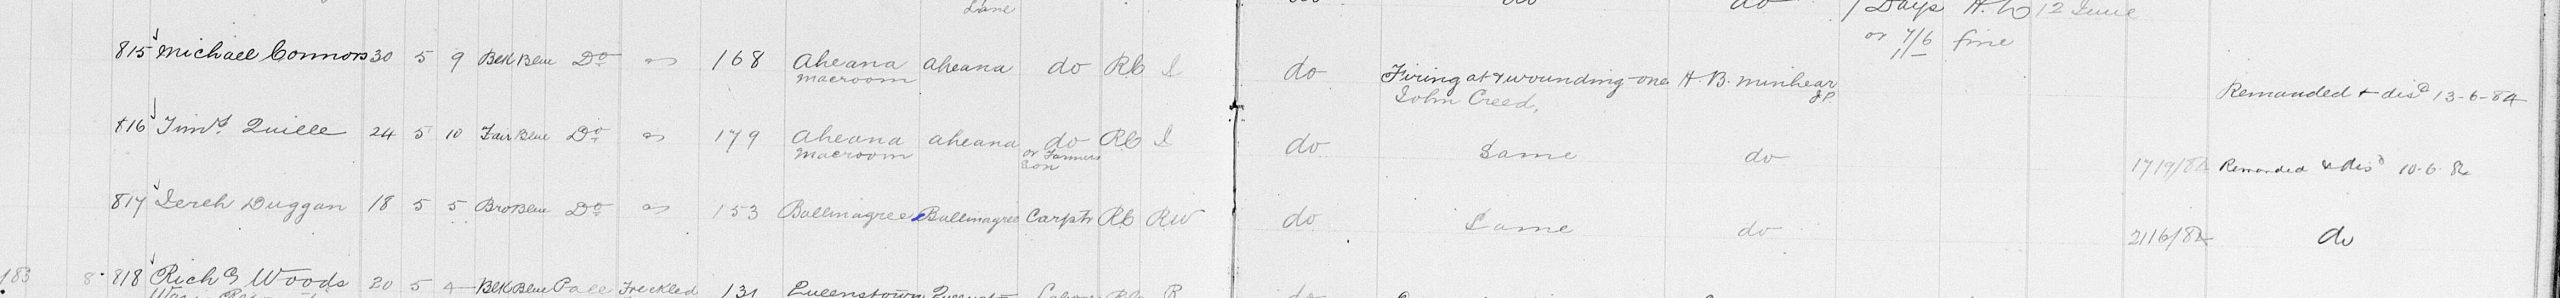 Lane do do do 7 Days H.L 12 June
or 7/6 fine
815 Michael Connors 30 5 9 Blk Blue Do 168 Aheana Aheana do RC I do Firing at & wounding one H. B. Minhear
Macroom John Creed, J.P. Remanded & disd 13-6-84
816 Timy Quille 24 5 10 Fair Blue Do 179 Aheana Aheana do RC I do Same do
Macroom or Farmers Son Remanded & disd 10-6-82
817 Jereh Duggan 18 5 5 Bro Blue Do 153 Ballinagree Ballinagree Carptr RC RW do Same do do
183 8 818 Richd Woods 20 5 4 Blk Blue Pale Freckled 131 Queenstown